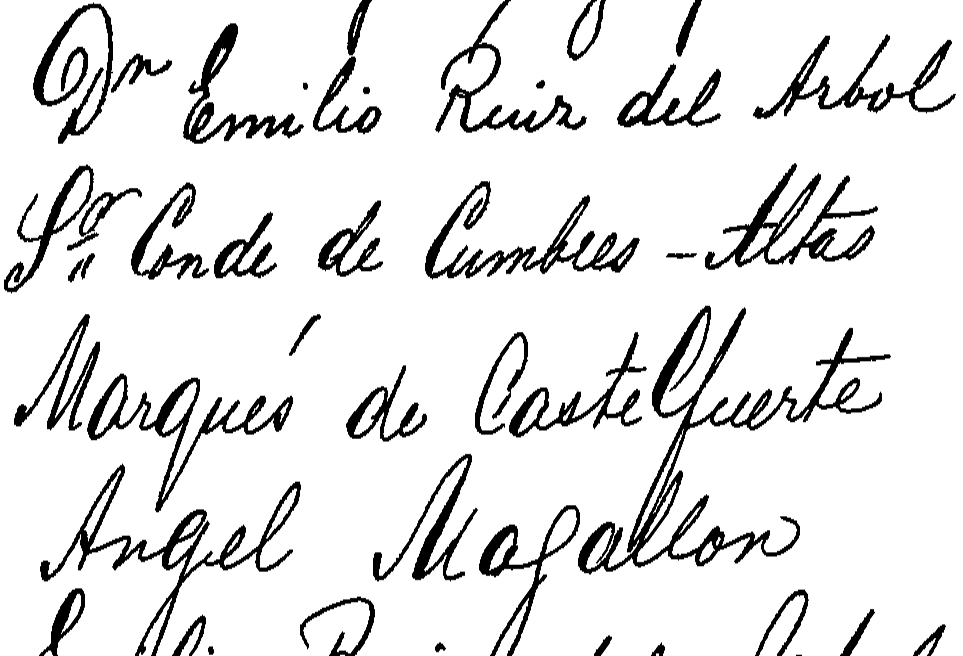 Dn Emilio Ruiz del Arbol
Sr Conde de Cumbres - Altas
Marqués de Castelfuerte
Angel Magallon